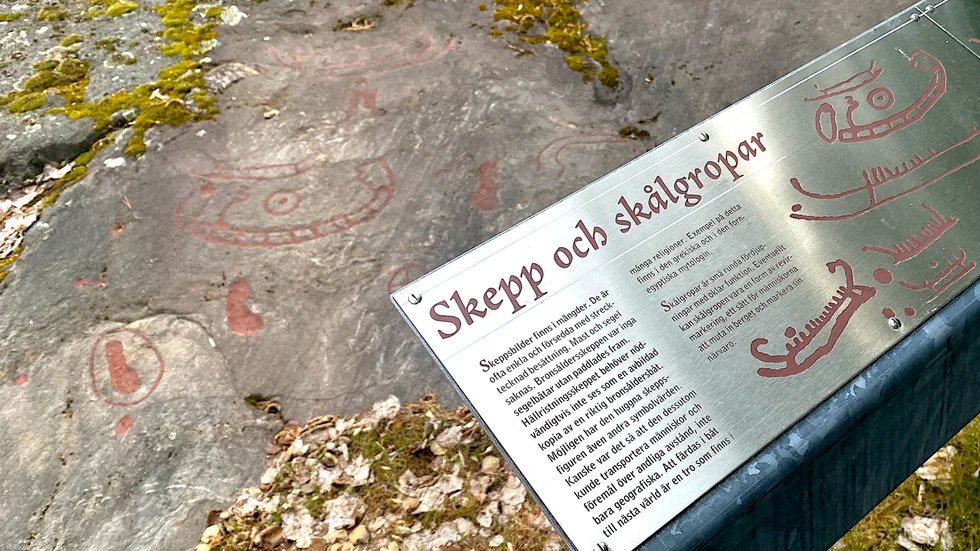 Skepp och skålgropar
Skeppsbilder finns i mängder. De är
ofta enkla och försedda med streck-
tecknad besättning. Mast och segel
saknas. Bronsåldersskeppen var inga
segelbåtar utan paddlades fram.
Hällristningsskeppet behöver nöd-
vändigtvis inte ses som en avbildad
kopia av en riktig bronsåldersbåt.
Möjligen har den huggna skepps-
figuren även andra symbolvärden.
Kanske var det så att den dessutom
kunde transportera människor och
föremål över andliga avstånd, inte
bara geografiska. Att färdas i båt
till nästa värld är en tro som finns i
många religioner. Exempel på detta
finns i den grekiska och i den forn-
egyptiska mytologin.
Skålgropar är små runda fördjup-
ningar med oklar funktion. Eventuellt
kan skålgropen vara en form av revir-
markering, ett sätt för människorna
att muta in berget och markera sin
närvaro.